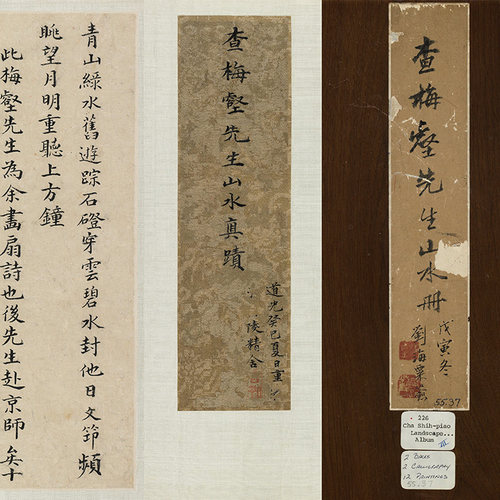 青山綠水舊遊踪石磴穿雲碧水封他日文節頻
眺望月明重聽上方鐘
此梅壑先生為余畫扇詩也後先生赴京師矣十
查梅壑先生山水真蹟
道光癸巳夏日重
陵精舍
查梅壑先生山水冊
戊寅冬
劉海粟
55.37
226
Cha Shih-piao
Landscape...
Album
III
2 BDRS
2 CALLIGRAPHY
12 PAINTINGS
55.37